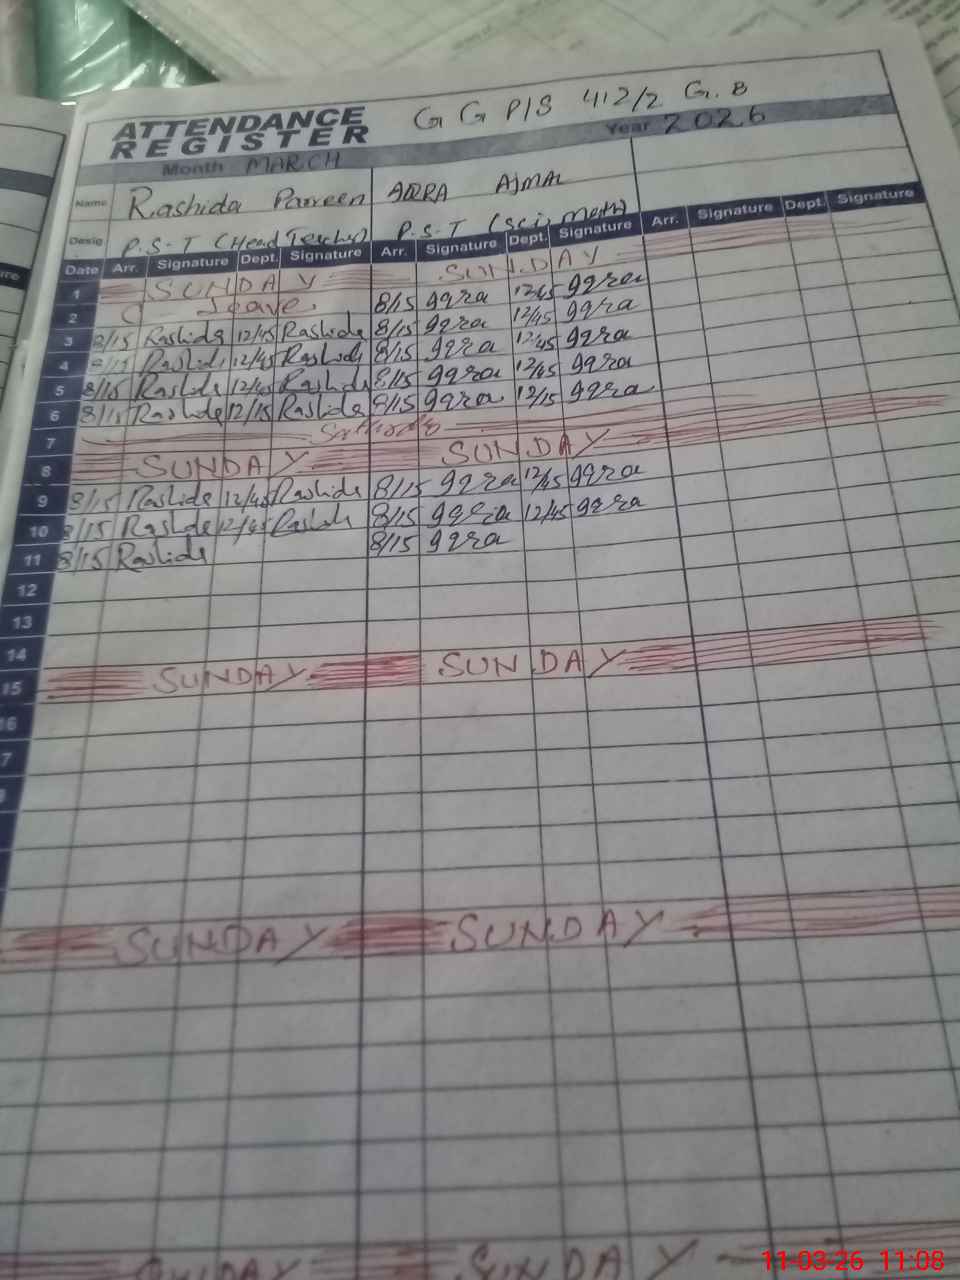 G G P/S 412/2 G.B
ATTENDANCE
REGISTER
Month MARCH Year 2026
Name Rashida Parveen AQRA AJMAL
Desig P.S.T (Head Teacher) P.S.T (Sci, Math)
Date Arr. Signature Dept. Signature Arr. Signature Dept. Signature Arr. Signature Dept. Signature
1 SUNDAY SUNDAY
2 Leave 8/15 Iqra 12/45 Iqra
3 8/15 Rashida 12/45 Rashida 8/15 Iqra 12/45 Iqra
4 8/15 Rashida 12/45 Rashida 8/15 Iqra 12/45 Iqra
5 8/15 Rashida 12/45 Rashida 8/15 Iqra 12/45 Iqra
6 8/15 Rashida 12/15 Rashida 8/15 Iqra 12/15 Iqra
7
8 SUNDAY SUNDAY
9 8/15 Rashida 12/45 Rashida 8/15 Iqra 12/45 Iqra
10 8/15 Rashida 12/45 Rashida 8/15 Iqra 12/45 Iqra
11 8/15 Rashida 8/15 Iqra
12
13
14
15 SUNDAY SUNDAY
16
7
SUNDAY SUNDAY
SUNDAY SUNDAY
11-03-26 11:08